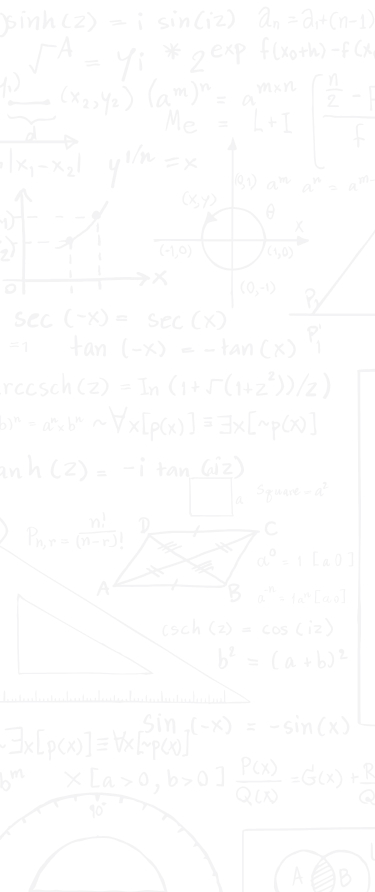 sinh(z) = i sin(iz) aₙ = a₁+(n-1)
√A = yi * 2 exp f(x₀+h) - f(x₀
(x₂, y₂) (aᵐ)ⁿ = aᵐˣⁿ n/2 - F
d Me = L + I f
= |x₁ - x₂| y^1/n = x (0,1) aᵐ aᵐ = aᵐ⁻
(x,y) θ
x
(-1,0) (1,0)
0 x (0,-1) P₁
sec (-x) = sec (x) P'₁
=1 tan (-x) = -tan (x)
rccsch (z) = In (1+√(1+z²))/z)
b)ⁿ = aⁿxbⁿ ~∀x[p(x)] ≡ ∃x[~p(x)]
anh (z) = -i tan (iz)
a Square = a²
Pn,r = n!/(n-r)! D C
a⁰ = 1 [a 0]
A B
(sch (z) = cos (iz)
b² = (a+b)²
sin (-x) = -sin(x)
~∃x[p(x)] ≡ ∀x[~p(x)]
bᵐ x [a > 0, b > 0] P(x)/Q(x) = G(x) + R/Q(
90°
A B